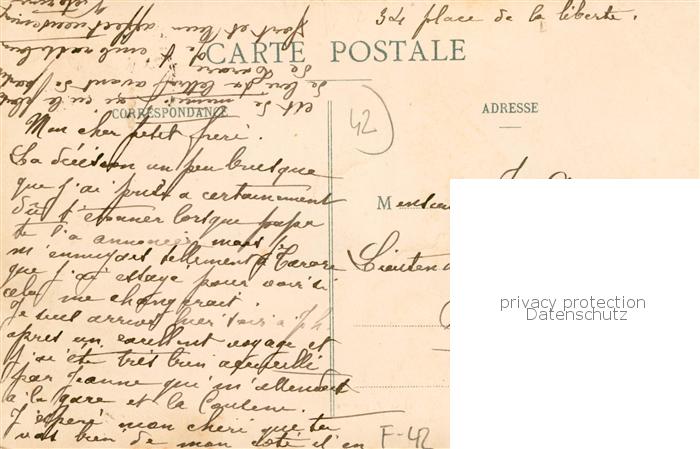 34 place de la liberté.
CARTE POSTALE
CORRESPONDANCE
ADRESSE
42
Mon cher petit frère.
La décision un peu brusque
que j'ai prise a certainement
dûs t'étonner lorsque papa
te l'a annoncée mais je
m'ennuyais tellement à Tarare
que j'ai essayé pour voir si
cela me changerait.
Je suis arrivée hier soir à 7h
après un excellent voyage et
j'ai été très bien accueilli
par Jeanne qui m'attendait
à la gare et la
J'espère mon chéri que tu
vas bien de mon côté il en
est de même
de Tarare
de t'embrasser
fort et bien affectueusement
Monsieur
Lieuten
privacy protection
Datenschutz
F-42